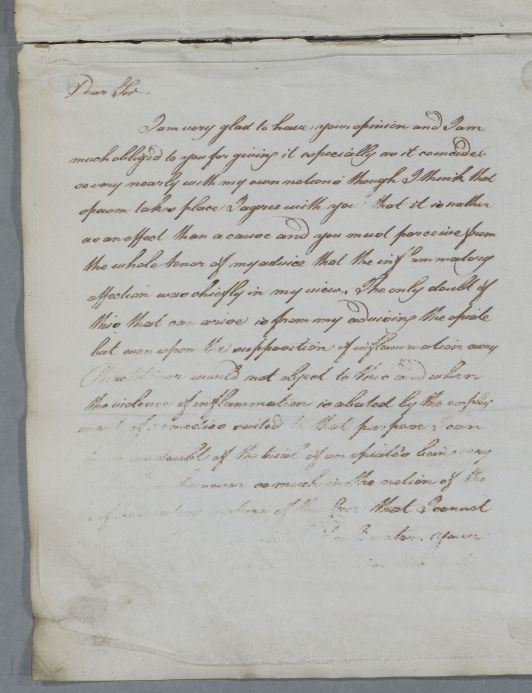 Dear Sir.
I am very glad to have your opinion and I am
much obliged to you for giving it especially as it coincides
so very nearly with my own notions though I think that
spasm takes place I agree with you that it is rather
as an effect than a cause and you must perceive from
the whole tenor of my advice that the inflammatory
affection was chiefly in my view. The only doubt of
this that can arise is from my advising the opiate
but even upon the supposition of inflammation every
would not object to this and when
the violence of inflammation is abated by the employ
ment of remedies suited to that purpose I can
have no doubt of the trial of an opiate being very
so much in the notion of the
inflammatory nature of the that I cannot
your